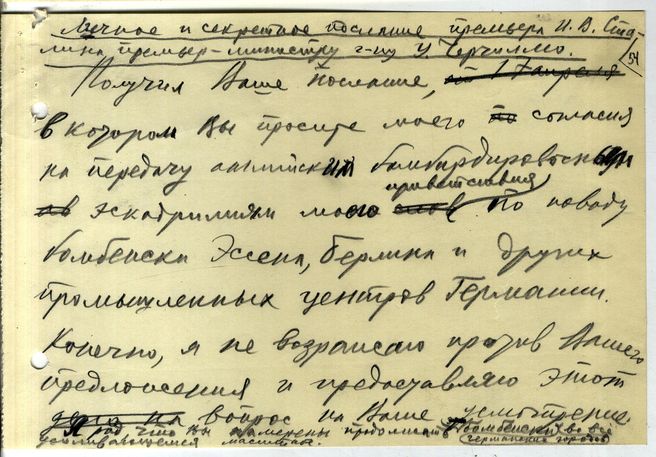 Личное и секретное послание премьера И. В. Ста-
лина премьер-министру г-ну У. Черчиллю.
54
Получил Ваше послание, от 17 апреля
в котором Вы просите моего по согласия
на передачу английским бомбардировочным
приветствия
эскадрильям моего слов по поводу
бомбежки Эссена, Берлина и других
промышленных центров Германии.
Конечно, я не возражаю против Вашего
предложения и предоставляю этот
вопрос на Ваше усмотрение.
Я рад что Вы намерены продолжать бомбежки во все
усиливающемся масштабе. германских городов